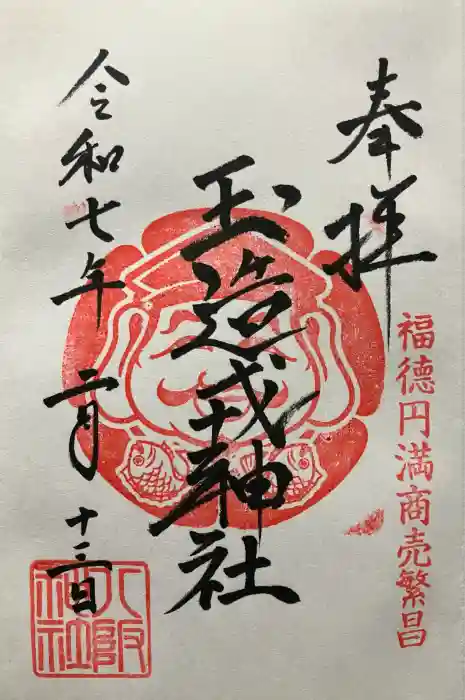 奉拝
福徳円満商売繁昌
玉造戎神社
令和七年二月十三日
大阪
神社